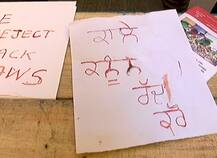 E
EJECT
ACK
AWS
ਕਾਲੇ
ਕਨੂੰਨ
ਰੱਦ
ਕਰੋ